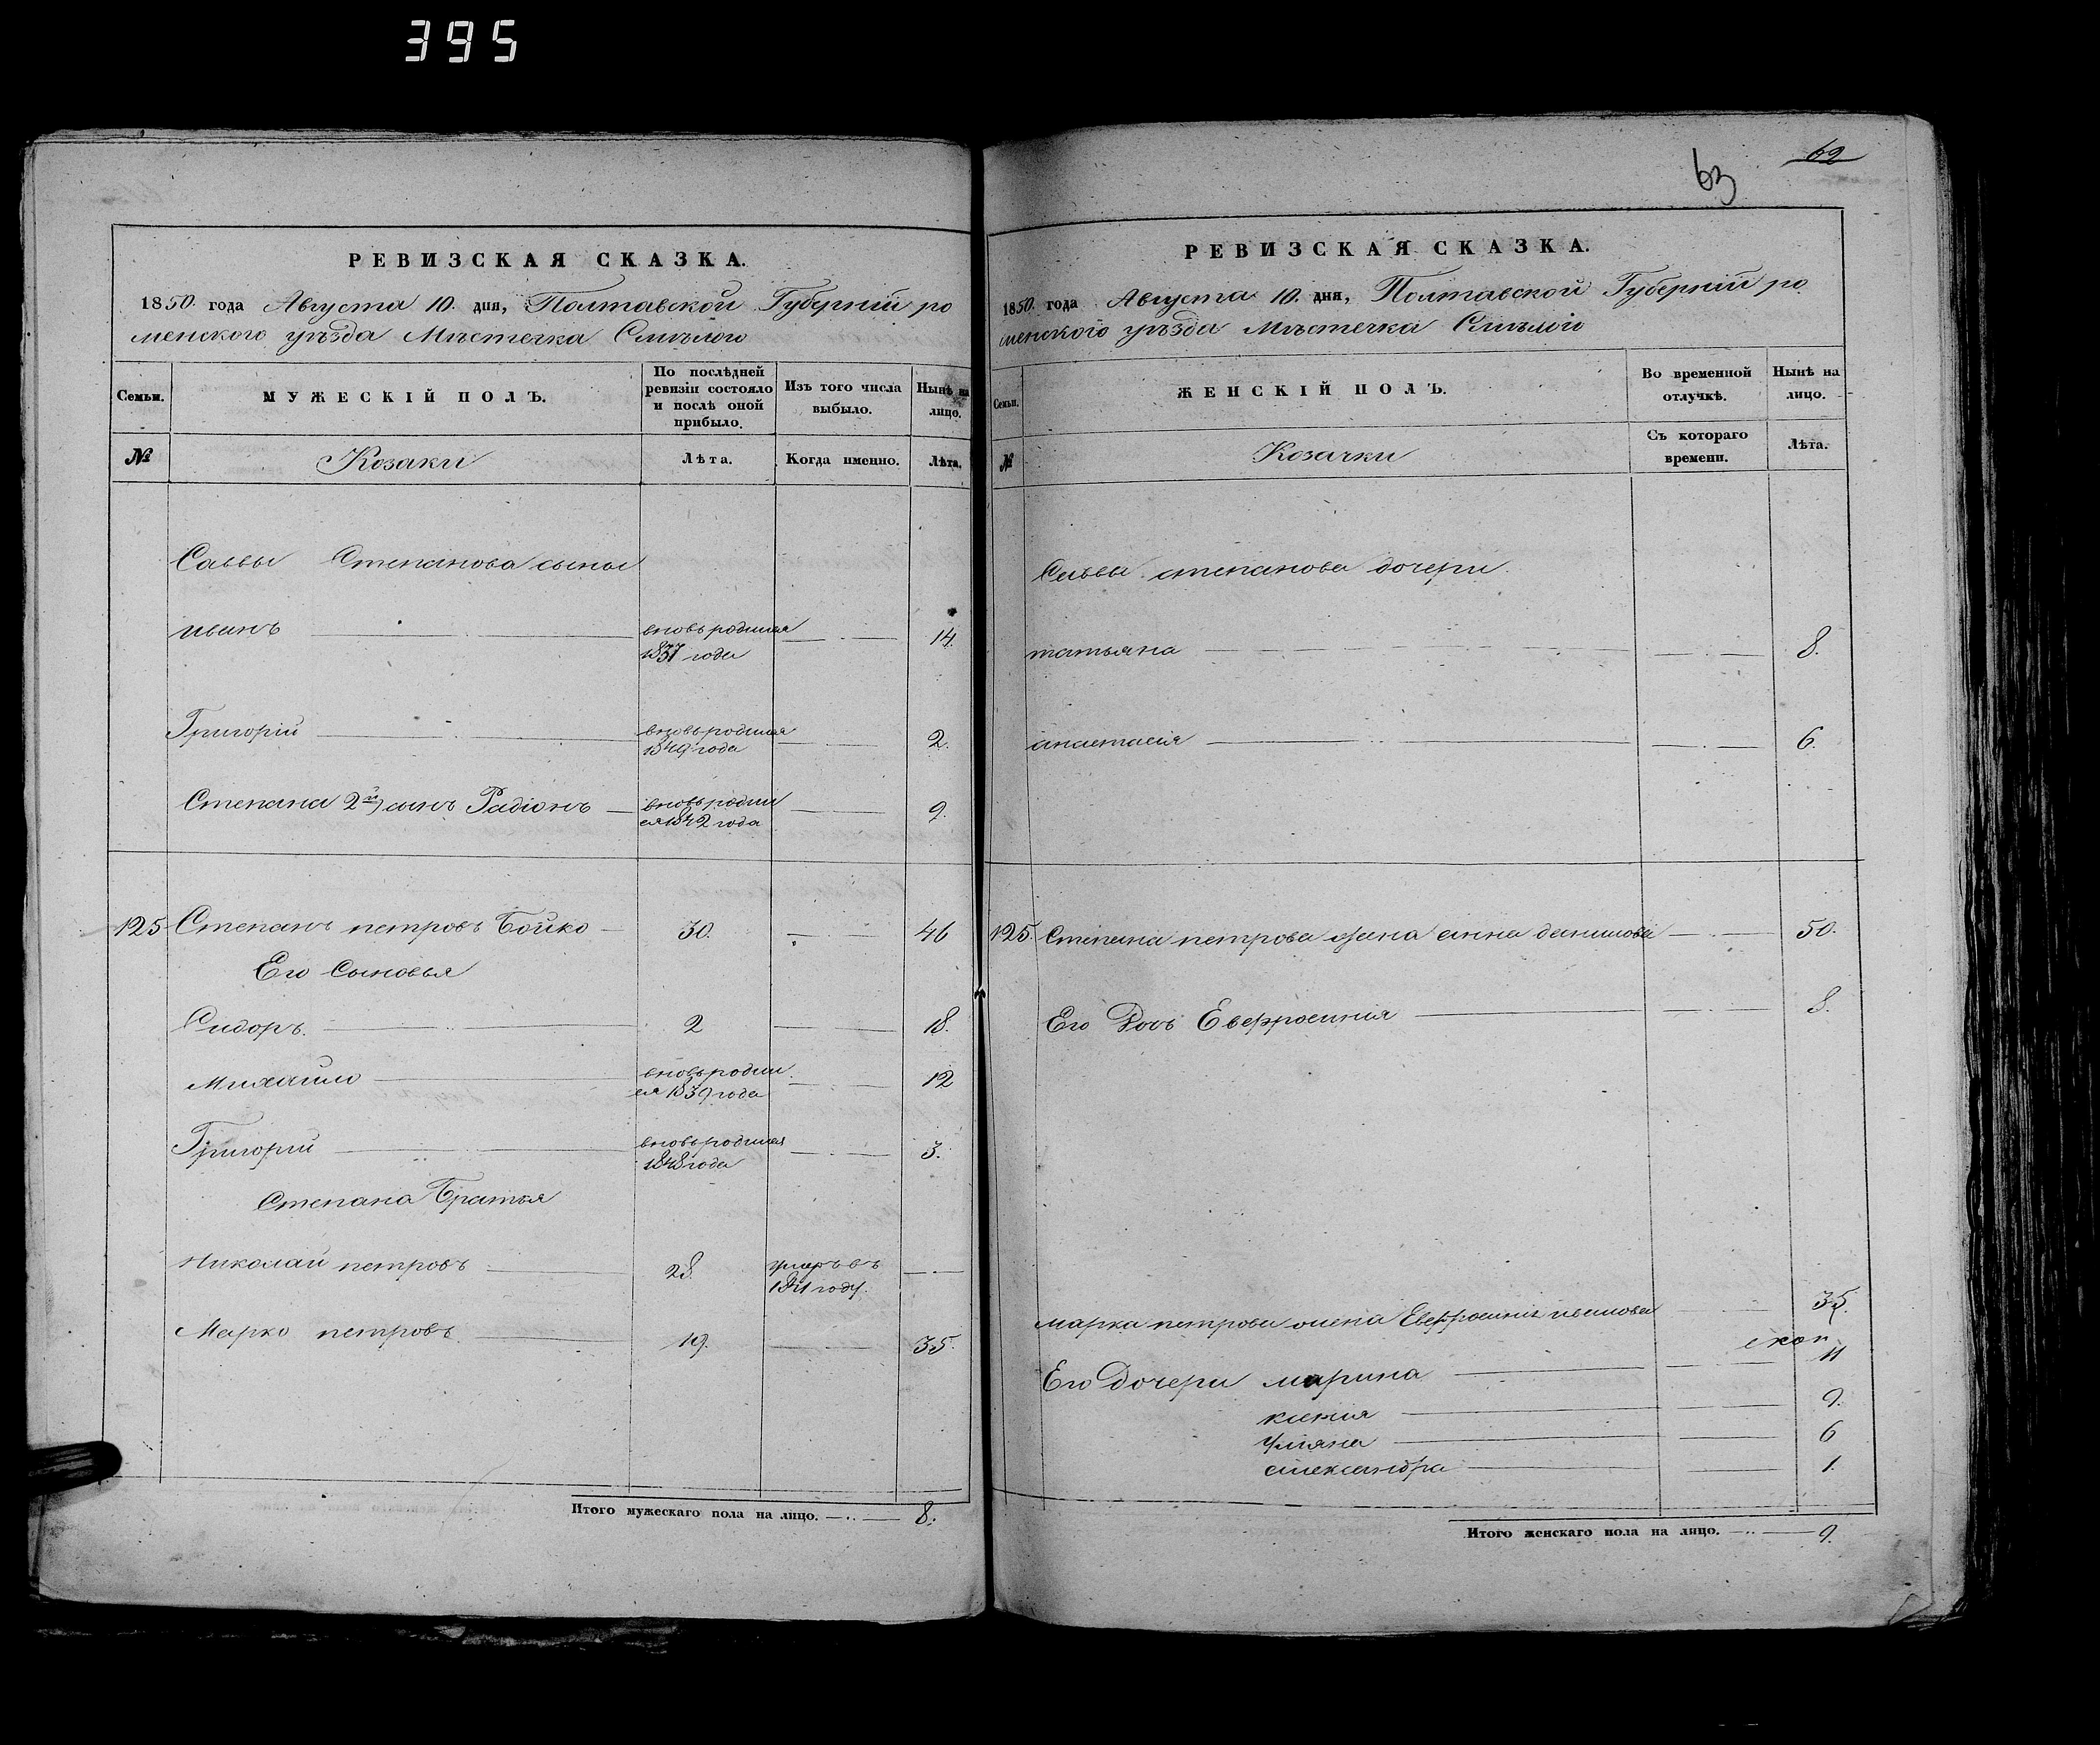 395
РЕВИЗСКАЯ СКАЗКА.
1850. года Августа 10. дня, Полтавской Губерніи ро
менского уѣзда Мѣстечка Смѣлого
Семьи. МУЖЕСКІЙ ПОЛЪ. По послѣдней ревизіи состояло и послѣ оной прибыло. Изъ того числа выбыло. Нынѣ на лицо.
№ Козаки Лѣта. Когда именно. Лѣта.
Саввы Степанова сыны
иванъ вновь родился 1837 года 14.
Григорій вновь родился 1849 года 2.
Степана 2й сынъ Радіонъ вновь родил
ся 1842 года 9.
125 Степанъ петровъ Бойко 30. 46
Его Сыновья
Сидоръ. 2 18.
Михайло вновь родил
ся 1839 года 12
Григорій вновь родился 1848 года 3.
Степана Братья
Николай петровъ 28. умеръ въ 1841 году.
Марко петровъ 19. 35.
Итого мужескаго пола на лицо. 8.
63 62
РЕВИЗСКАЯ СКАЗКА.
1850. года Августа 10. дня, Полтавской Губерніи ро
менского уѣзда Мѣстечка Смѣлого
Семьи. ЖЕНСКІЙ ПОЛЪ. Во временной отлучкѣ. Нынѣ на лицо.
№ Козачки Съ котораго времени. Лѣта.
Саввы степанова дочери
татьяна 8.
анастасія 6.
125. Степана петрова жена анна данилова 50.
Его Дочь Евфросинія 8.
Марка петрова жена Евфросинія иванова 35.
Его Дочери марина 11
ксенія 9.
Уляна 6
александра 1.
Итого женскаго пола на лицо. 9.